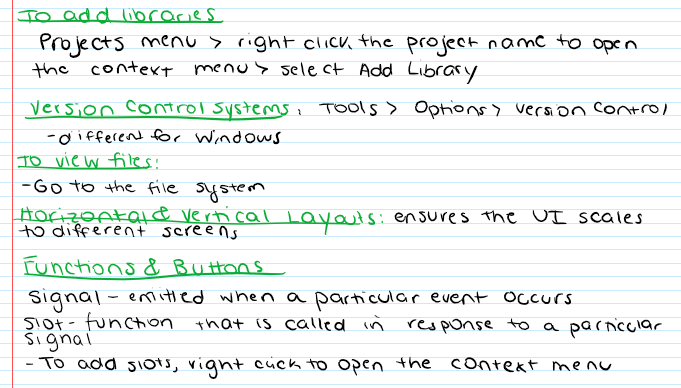 To add libraries
Projects menu > right click the project name to open
the context menu > select Add Library
Version Control Systems: Tools > Options > Version Control
- different for Windows
To view files:
- Go to the file system
Horizontal & Vertical Layouts: ensures the UI scales
to different screens
Functions & Buttons
Signal - emitted when a particular event occurs
Slot - function that is called in response to a particular
signal
- To add slots, right click to open the context menu